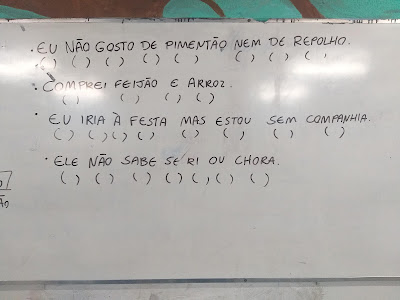 · EU NÃO GOSTO DE PIMENTÃO NEM DE REPOLHO.
( ) ( ) ( ) ( ) ( ) ( ) ( ) ( )
· COMPREI FEIJÃO E ARROZ.
( ) ( ) ( ) ( )
· EU IRIA À FESTA MAS ESTOU SEM COMPANHIA.
( ) ( ) ( ) ( ) ( ) ( ) ( ) ( )
· ELE NÃO SABE SE RI OU CHORA.
( ) ( ) ( ) ( ) ( ) ( ) ( )
ÃO